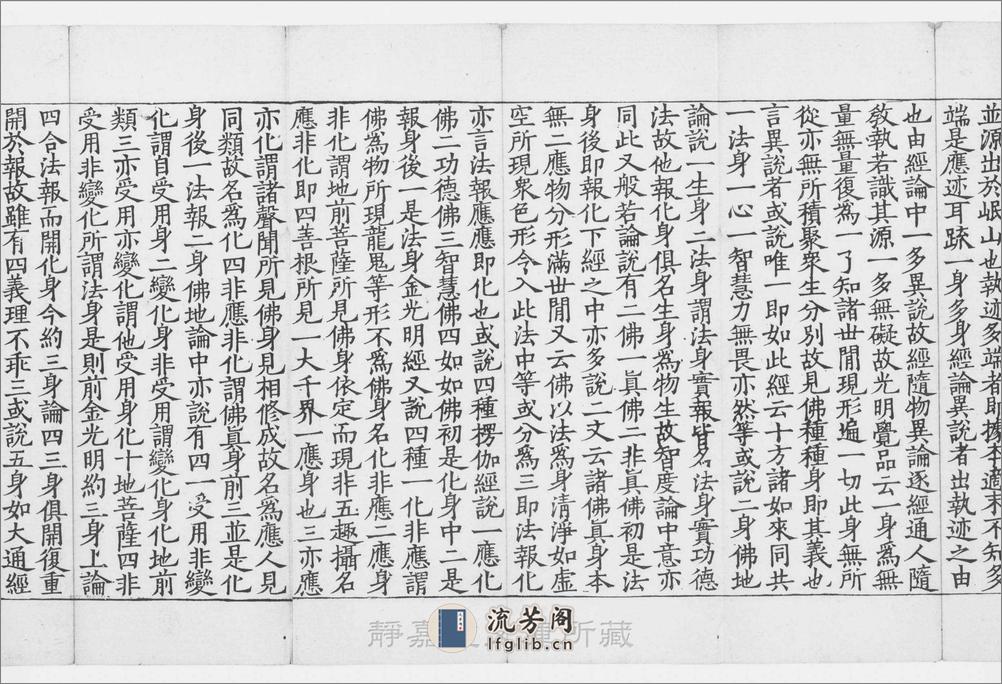 並源出於岷山也執迹多端者即據本適末不知多
端是應迹耳䟽一身多身經論異說者出執迹之由
也由經論中一多異說故經隨物異論逐經通人隨
敎執若識其源一多無礙故光明覺品云一身為無
量無量復為一了知諸世間現形遍一切此身無所
從亦無所積聚衆生分別故見佛種種身即其義也
言異說者或說唯一即如此經云十方諸如來同共
一法身一心一智慧力無畏亦然等或說二身佛地
論說一生身二法身謂法身實報皆名法身實功德
法故他報化身俱名生身為物生故智度論中意亦
同此又般若論說有二佛一眞佛二非眞佛初是法
身後即報化下經之中亦多說二文云諸佛眞身本
無二應物分形滿世間又云佛以法為身清淨如虛
空所現衆色形令入此法中等或分為三即法報化
亦言法報應應即化也或說四種楞伽經說一應化
佛二功德佛三智慧佛四如如佛初是化身中二是
報身後一是法身金光明經又說四種一化非應謂
佛為物所現龍鬼等形不為佛身名化非應二應身
非化謂地前菩薩所見佛身依定而現非五趣攝名
應非化即四善根所見一大千界一應身也三亦應
亦化謂諸聲聞所見佛身見相修成故名為應人見
同類故名為化四非應非化謂佛眞身前三並是化
身後一法報二身佛地論中亦說有四一受用非變
化謂自受用身二變化身非受用謂變化身化地前
類三亦受用亦變化謂他受用身化十地菩薩四非
受用非變化所謂法身是則前金光明約三身上論
四合法報而開化身今約三身論四三身俱開復重
開於報故雖有四義理不乖三或說五身如大通經
流芳阁
lfglib.cn